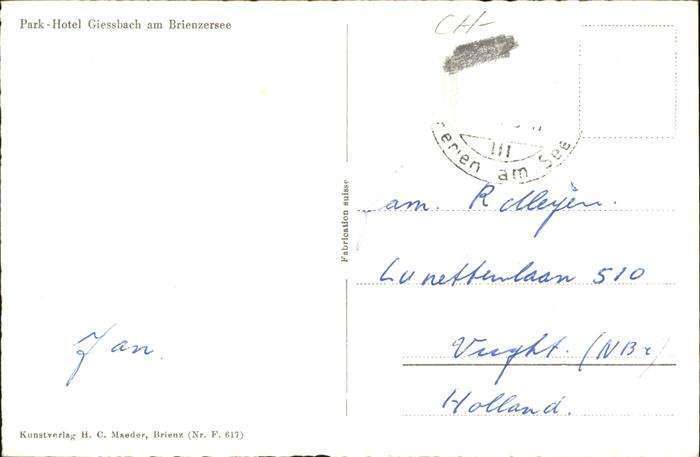 Park-Hotel Giessbach am Brienzersee
CH-
III
Ferien am See
Fabrication suisse
am. R Meyèr.
Lunettenlaan 510
Vught. (NBr)
Holland.
Jan.
Kunstverlag H. C. Maeder, Brienz (Nr. F. 617)